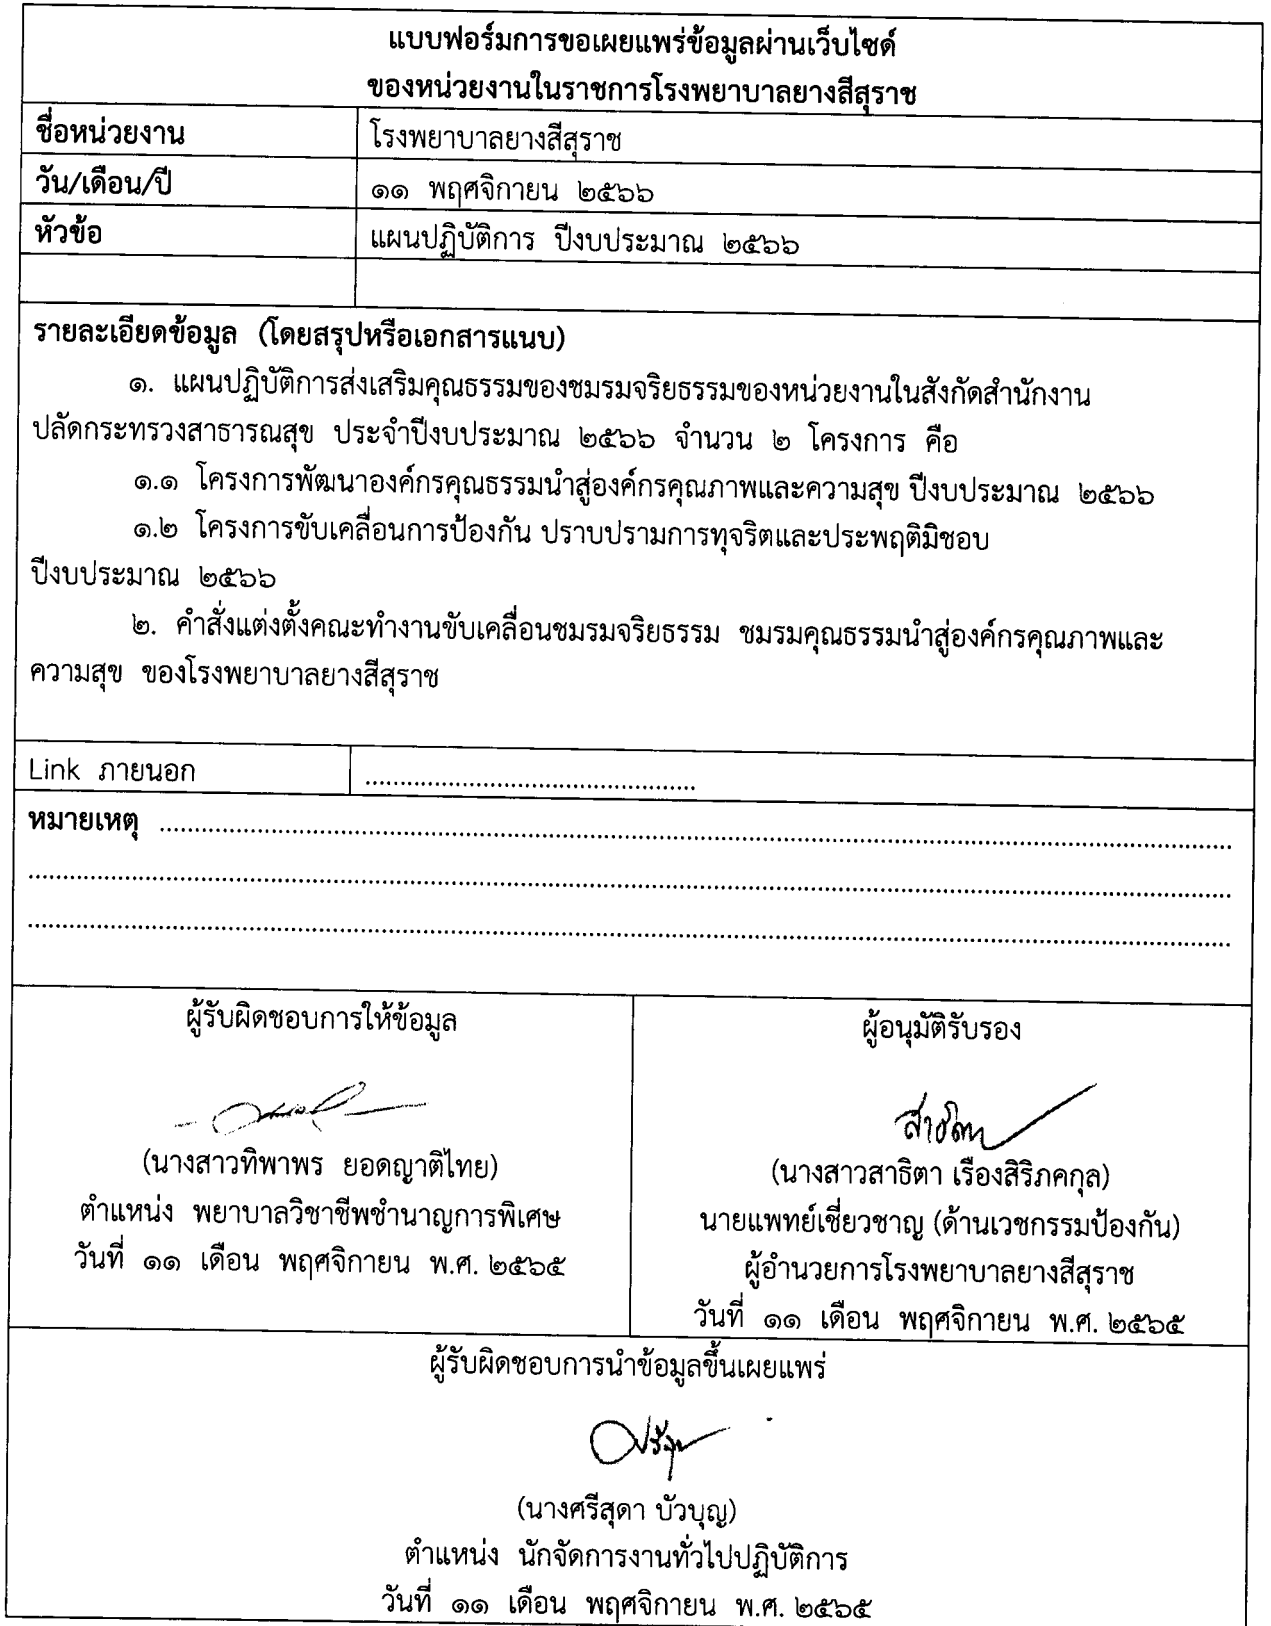 แบบฟอร์มการขอเผยแพร่ข้อมูลผ่านเว็บไซด์
ของหน่วยงานในราชการโรงพยาบาลยางสีสุราช
ชื่อหน่วยงาน โรงพยาบาลยางสีสุราช
วัน/เดือน/ปี ๑๑ พฤศจิกายน ๒๕๖๖
หัวข้อ แผนปฏิบัติการ ปีงบประมาณ ๒๕๖๖
รายละเอียดข้อมูล (โดยสรุปหรือเอกสารแนบ)
๑. แผนปฏิบัติการส่งเสริมคุณธรรมของชมรมจริยธรรมของหน่วยงานในสังกัดสำนักงาน
ปลัดกระทรวงสาธารณสุข ประจำปีงบประมาณ ๒๕๖๖ จำนวน ๒ โครงการ คือ
๑.๑ โครงการพัฒนาองค์กรคุณธรรมนำสู่องค์กรคุณภาพและความสุข ปีงบประมาณ ๒๕๖๖
๑.๒ โครงการขับเคลื่อนการป้องกัน ปราบปรามการทุจริตและประพฤติมิชอบ
ปีงบประมาณ ๒๕๖๖
๒. คำสั่งแต่งตั้งคณะทำงานขับเคลื่อนชมรมจริยธรรม ชมรมคุณธรรมนำสู่องค์กรคุณภาพและ
ความสุข ของโรงพยาบาลยางสีสุราช
Link ภายนอก ................................................
หมายเหตุ ................................................
................................................
................................................
ผู้รับผิดชอบการให้ข้อมูล
(นางสาวทิพาพร ยอดญาติไทย)
ตำแหน่ง พยาบาลวิชาชีพชำนาญการพิเศษ
วันที่ ๑๑ เดือน พฤศจิกายน พ.ศ. ๒๕๖๕
ผู้อนุมัติรับรอง
สาธิตา
(นางสาวสาธิตา เรืองสิริภคกุล)
นายแพทย์เชี่ยวชาญ (ด้านเวชกรรมป้องกัน)
ผู้อำนวยการโรงพยาบาลยางสีสุราช
วันที่ ๑๑ เดือน พฤศจิกายน พ.ศ. ๒๕๖๕
ผู้รับผิดชอบการนำข้อมูลขึ้นเผยแพร่
(นางศรีสุดา บัวบุญ)
ตำแหน่ง นักจัดการงานทั่วไปปฏิบัติการ
วันที่ ๑๑ เดือน พฤศจิกายน พ.ศ. ๒๕๖๕